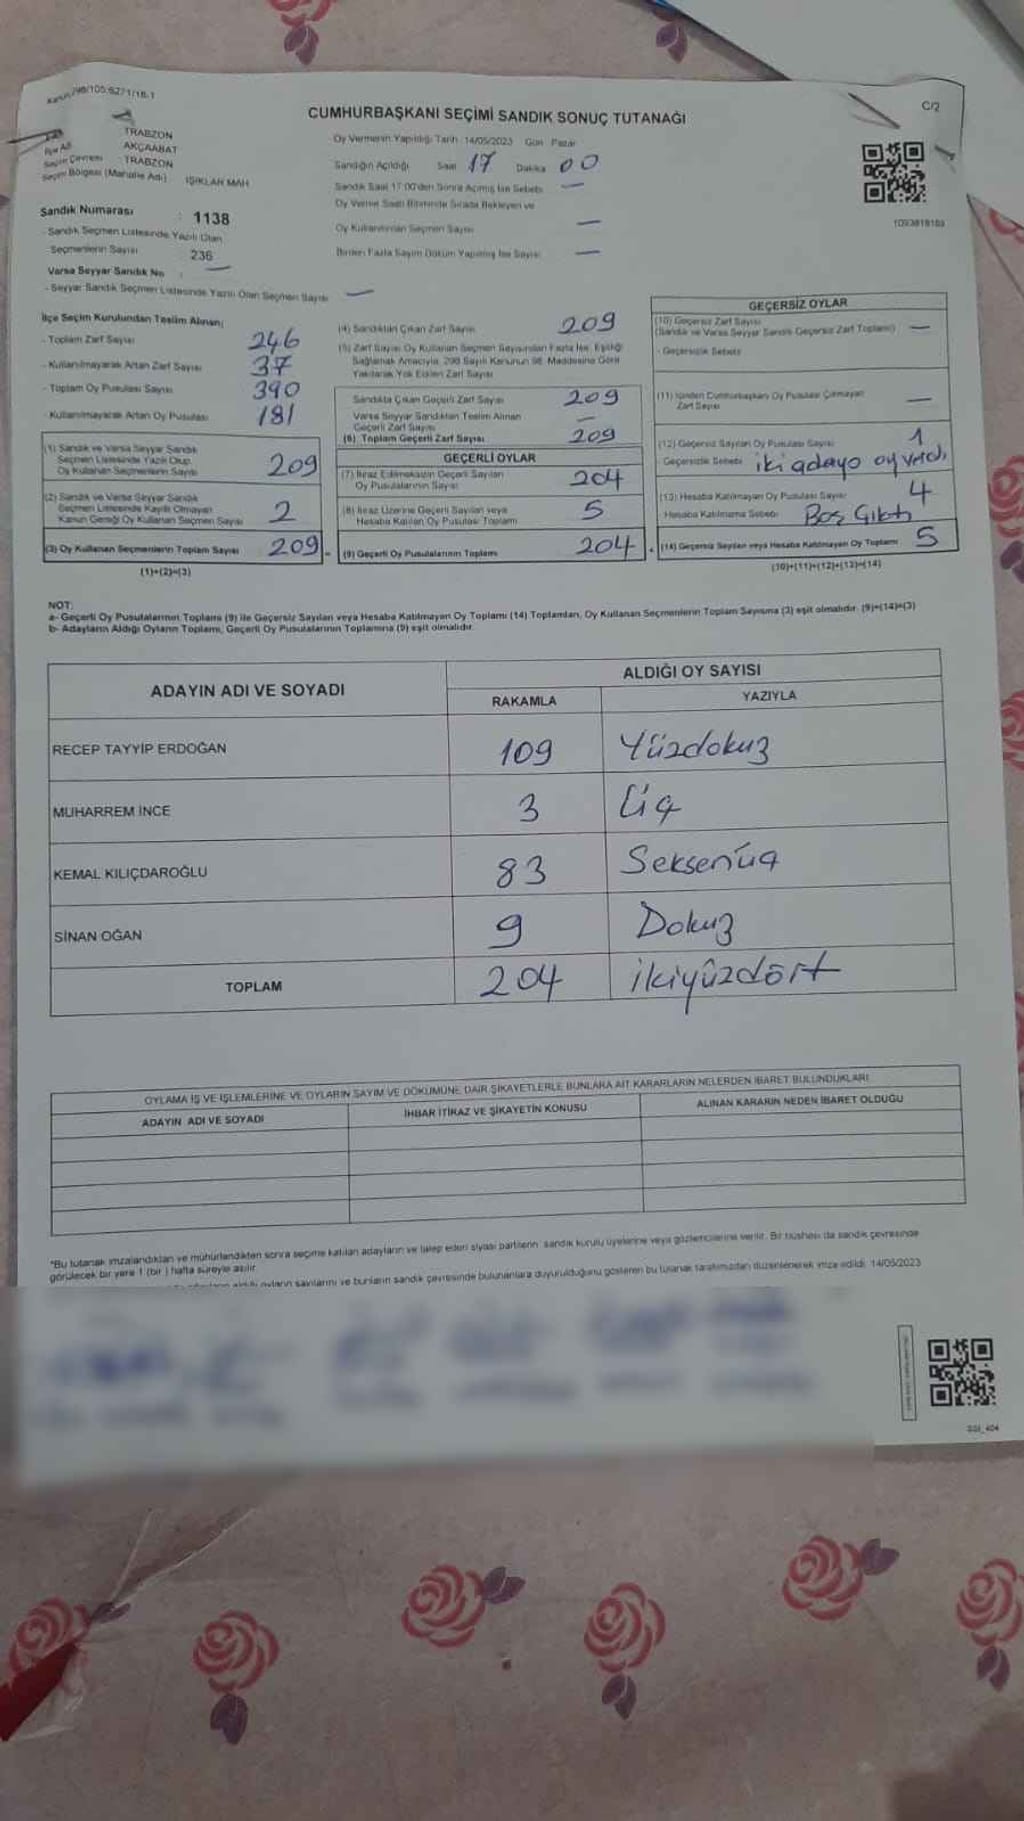 CUMHURBAŞKANI SEÇİMİ SANDIK SONUÇ TUTANAĞI
C/2
TRABZON
İlçe Adı AKÇAABAT
Seçim Çevresi TRABZON
Seçim Bölgesi (Mahalle Adı) IŞIKLAR MAH
Oy Vermenin Yapıldığı Tarih 14/05/2023 Gün Pazar
Sandığın Açıldığı Saat 17 Dakika 00
Sandık Saat 17:00'den Sonra Açılmış İse Sebebi —
Oy Verme Saati Bitiminde Sırada Bekleyen ve
Oy Kullandırılan Seçmen Sayısı —
Birden Fazla Sayım Döküm Yapılmış İse Sayısı —
1093818163
Sandık Numarası : 1138
- Sandık Seçmen Listesinde Yazılı Olan
Seçmenlerin Sayısı 236
Varsa Seyyar Sandık No : —
- Seyyar Sandık Seçmen Listesinde Yazılı Olan Seçmen Sayısı —
İlçe Seçim Kurulundan Teslim Alınan;
- Toplam Zarf Sayısı 246
- Kullanılmayarak Artan Zarf Sayısı 37
- Toplam Oy Pusulası Sayısı 390
- Kullanılmayarak Artan Oy Pusulası 181
(1) Sandık ve Varsa Seyyar Sandık
Seçmen Listesinde Yazılı Olup
Oy Kullanan Seçmenlerin Sayısı 209
(2) Sandık ve Varsa Seyyar Sandık
Seçmen Listesinde Kayıtlı Olmayan
Kanun Gereği Oy Kullanan Seçmen Sayısı 2
(3) Oy Kullanan Seçmenlerin Toplam Sayısı 209
(1)+(2)=(3)
(4) Sandıktan Çıkan Zarf Sayısı 209
(5) Zarf Sayısı Oy Kullanan Seçmen Sayısından Fazla İse, Eşitliği
Sağlamak Amacıyla, 298 Sayılı Kanunun 98. Maddesine Göre
Yakılarak Yok Edilen Zarf Sayısı
Sandıkta Çıkan Geçerli Zarf Sayısı 209
Varsa Seyyar Sandıktan Teslim Alınan
Geçerli Zarf Sayısı —
(6) Toplam Geçerli Zarf Sayısı 209
GEÇERLİ OYLAR
(7) İtiraz Edilmeksizin Geçerli Sayılan
Oy Pusulalarının Sayısı 204
(8) İtiraz Üzerine Geçerli Sayılan veya
Hesaba Katılan Oy Pusulası Toplamı 5
(9) Geçerli Oy Pusulalarının Toplamı 204
GEÇERSİZ OYLAR
(10) Geçersiz Zarf Sayısı
(Sandık ve Varsa Seyyar Sandık Geçersiz Zarf Toplamı) —
- Geçersizlik Sebebi
(11) İçinden Cumhurbaşkanı Oy Pusulası Çıkmayan
Zarf Sayısı —
(12) Geçersiz Sayılan Oy Pusulası Sayısı 1
Geçersizlik Sebebi iki adaya oy verdi
(13) Hesaba Katılmayan Oy Pusulası Sayısı 4
Hesaba Katılmama Sebebi Boş Çıktı
(14) Geçersiz Sayılan veya Hesaba Katılmayan Oy Toplamı 5
(10)+(11)+(12)+(13)=(14)
NOT:
a- Geçerli Oy Pusulalarının Toplamı (9) ile Geçersiz Sayılan veya Hesaba Katılmayan Oy Toplamı (14) Toplamları, Oy Kullanan Seçmenlerin Toplam Sayısına (3) eşit olmalıdır. (9)+(14)=(3)
b- Adayların Aldığı Oyların Toplamı, Geçerli Oy Pusulalarının Toplamına (9) eşit olmalıdır.
ADAYIN ADI VE SOYADI
ALDIĞI OY SAYISI
RAKAMLA YAZIYLA
RECEP TAYYİP ERDOĞAN 109 Yüzdokuz
MUHARREM İNCE 3 Üç
KEMAL KILIÇDAROĞLU 83 Seksenüç
SİNAN OĞAN 9 Dokuz
TOPLAM 204 ikiyüzdört
OYLAMA İŞ VE İŞLEMLERİNE VE OYLARIN SAYIM VE DÖKÜMÜNE DAİR ŞİKAYETLERLE BUNLARA AİT KARARLARIN NELERDEN İBARET BULUNDUKLARI
ADAYIN ADI VE SOYADI İHBAR İTİRAZ VE ŞİKAYETİN KONUSU ALINAN KARARIN NEDEN İBARET OLDUĞU
*Bu tutanak imzalandıktan ve mühürlendikten sonra seçime katılan adayların ve talep eden siyasi partilerin sandık kurulu üyelerine veya gözlemcilerine verilir. Bir nüshası da sandık çevresinde
görülecek bir yere 1 (bir) hafta süreyle asılır.
aldığı oyların sayılarını ve bunların sandık çevresinde bulunanlara duyurulduğunu gösteren bu tutanak tarafımızdan düzenlenerek imza edildi. 14/05/2023